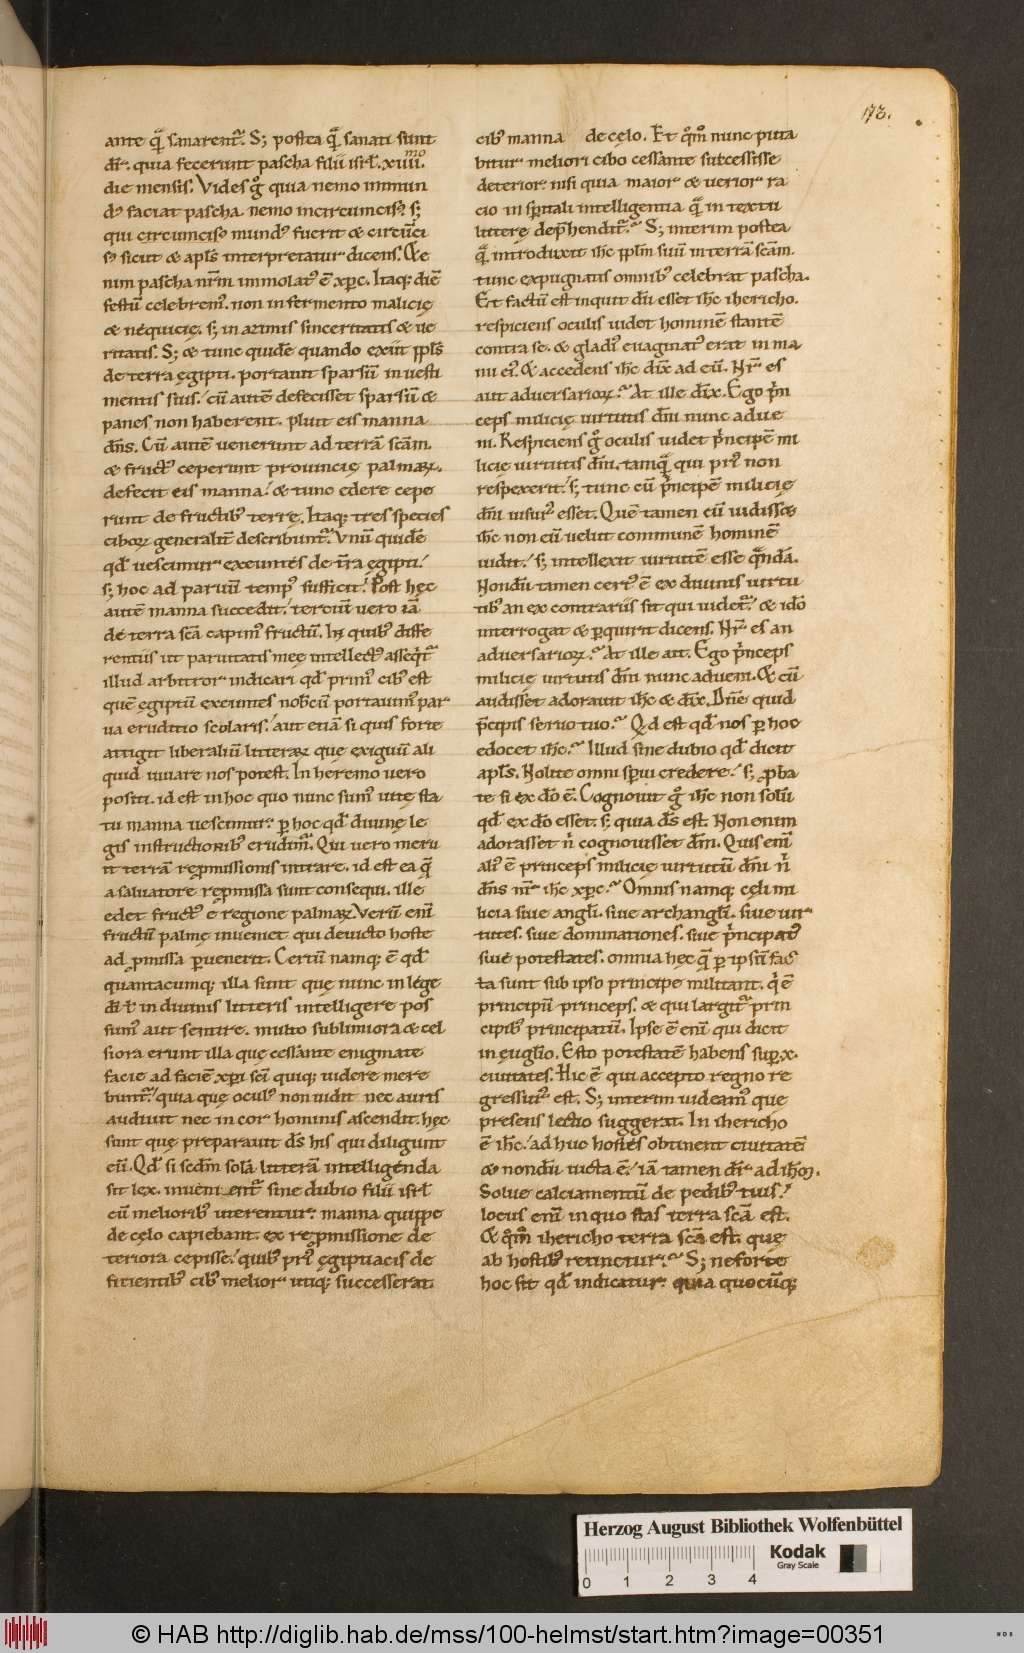 173.
ante qͣ sanarent᷑. S; postea qͣ sanati sunt
dr̅. quia fecerunt pascha filii isrl̅. xiiii.ᵐᵒ
die mensis. Vides gͦ quia nemo inmun
dꝰ faciat pascha. nemo incircumcisꝰ. s;
qui circumcisꝰ mundꝰ fuerit & circu̅ci
sꝰ sicut & apl̅s interpretatur dicens. Ete
nim pascha nr̅m immolatꝰ e̅ xp̅c. Itaq; die̅
festu̅ celebremꝰ. non in fermento malicię
& nequicię. s; in azimis sinceritatis & ue
ritatis. S; & tunc quide̅ quando exiit ppl̅s
de terra ęgipti. portauit sparsu̅ in uesti
mentis suis. cu̅ aute̅ defecisset sparsu̅ &
panes non haberent. pluit eis manna
dn̅s. Cu̅ aute̅ uenerunt ad terra̅ sc̅am.
& fructꝰ ceperunt prouincię palmaꝝ.
defecit eis manna. & tunc edere cepe
runt de fructibꝰ terrę. Itaq; tres species
ciboꝝ generalit̅ describunt᷑. Vnu̅ quide̅
qd̅ uescimur exeuntes de t̅ra ęgipti.
s; hoc ad paruu̅ tempꝰ sufficit. Post hęc
aute̅ manna succedit. terciu̅ uero ia̅
de terra sc̅a capimꝰ fructu̅. In quibꝰ diffe
rentiis ut paruitatis meę intellectꝰ asseqͥt᷑
illud arbitror indicari qd̅ primꝰ cibꝰ est
que̅ ęgiptu̅ exeuntes nobcu̅ portauimꝰ par
ua eruditio scolaris. aut etia̅ si quis forte
attigit liberaliu̅ litteraꝝ que exiguu̅ ali
quid iuuare nos potest. In heremo uero
positi. id est in hoc quo nunc sumꝰ uite sta
tu manna uescimur. ꝑ hoc qd̅ diuinę le
gis instructionibꝰ erudim᷑. Qui uero meru
it terra̅ repmissionis intrare. id est ea quę
a saluatore repmissa sunt consequi. ille
edet fructꝰ e regione palmaꝝ. Veru̅ eni̅
fructu̅ palmę inueniet qui deuicto hoste
ad ꝓmissa ꝑuenerit. Certu̅ namq; e̅ qd̅
quantacumq; illa sunt quę nunc in lege
di̅ ł in diuinis litteris intelligere pos
sumꝰ aut sentire. multo sublimiora & cel
siora erunt illa quę cessante enigmate
facie ad facie̅ xp̅i sc̅i quiq; uidere mere
bunt᷑. quia quę oculꝰ non uidit nec auris
audiuit nec in cor hominis ascendit. hęc
sunt quę preparauit ds̅ his qui diligunt
eu̅. Qd̅ si scd̅m sola̅ littera̅ intelligenda
sit lex. inueni ent᷑ sine dubio filii isrl̅
cu̅ melioribꝰ uterentur. manna quippe
de cęlo capiebant. ex repmissione de
teriora cepisse. quibꝰ priꝰ ęgiptiacis de
ficientibꝰ cibꝰ melior utiq; successerat.
cibꝰ manna de cęlo. Et qͦmͦ nunc puta
bitur meliori cibo cessante successisse
deterior. nisi quia maior & uerior ra
cio in sp̅uali intelligentia qͣ in textu
litterę dep̅hendit᷑. S; interim postea
qͣ introduxit ih̅c ppl̅m suu̅ in terra̅ sc̅am.
tunc expugnatis omnibꝰ celebrat pascha.
Et factu̅ est inquit du̅ esset ih̅c ihericho.
respiciens oculis uidet homine̅ stante̅
contra se. & gladiꝰ euaginatꝰ erat in ma
nu eiꝰ. & accedens ih̅c dix̅ ad eu̅. Nr̅ es
aut aduersarioꝝ? At ille dix̅. Ego pͥn
ceps milicię uirtutis dn̅i nunc adue
ni. Respiciens gͦ oculis uidet pͥncipe̅ mi
licię uirtutis dn̅i. tamqͣ qui priꝰ non
respexerit. s; tunc cu̅ pͥncipe̅ milicię
dn̅i uisurꝰ esset. Que̅ tamen cu̅ uidisset
ih̅c non eu̅ uelut commune̅ homine̅
uidit. s; intellexit uirtute̅ esse qͣnda̅.
Nondu̅ tamen certꝰ e̅ ex diuinis uirtu
tibꝰ an ex contrariis sit qui uidet᷑. & idͦo
interrogat & ꝑquirit dicens. Nr̅ es an
aduersarioꝝ? At ille ait. Ego pͥnceps
milicię uirtutis dn̅i nunc adueni. Et cu̅
audisset adorauit ih̅c & dix̅. Dn̅e quid
p̅cipis seruo tuo? Qd est qd̅ nos ꝑ hoc
edocet ih̅c? Illud sine dubio qd̅ dicit
apl̅s. Nolite omni sp̅ui credere. s; ꝓba
te si ex do̅ e̅. Cognouit gͦ ih̅c non solu̅
qd̅ ex do̅ esset. s; quia ds̅ est. Non enim
adorasset nͥ cognouisset dm̅. Quis eni̅
aliꝰ e̅ princeps milicię uirtutu̅ dn̅i nͥ
dn̅s nr̅ ih̅c xp̅c? Omnis namq; cęli mi
licia siue angl̅i. siue archangl̅i. siue uir
tutes. siue dominationes. siue pͥncipatꝰ
siue potestates. omnia hęc quę ꝑ ipsu̅ fac
ta sunt sub ipso principe militant. qͥ e̅
principu̅ princeps. & qui largit᷑ prin
cipibꝰ principatu̅. Ipse e̅ eni̅ qui dicit
in euglio̅. Esto potestate̅ habens suꝑ .x.
ciuitates. Hic e̅ qui accepto regno re
gressurꝰ est. S; interim uideamꝰ que
presens lectio suggerit. In ihericho
e̅ ih̅c. ad huc hostes obtinent ciuitate̅
& nondu̅ uicta e̅. ia̅ tamen dr̅ ad ih̅m.
Solue calciamentu̅ de pedibꝰ tuis.
locus eni̅ in quo stas terra sc̅a est.
Et qͦmͦ ihericho terra sc̅a est. quę
ab hostibꝰ retinetur? S; ne forte
hoc sit qd̅ indicatur. quia quocu̅q;
Herzog August Bibliothek Wolfenbüttel
Kodak
Gray Scale
0 1 2 3 4
© HAB http://diglib.hab.de/mss/100-helmst/start.htm?image=00351